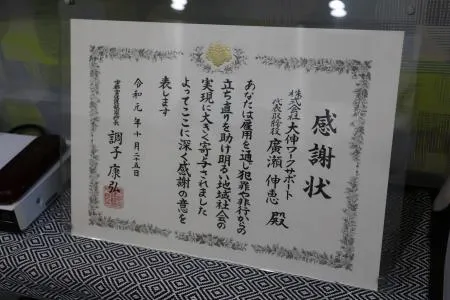 感謝状
株式会社大伸ワークサポート
代表取締役 廣瀬伸恵 殿
あなたは雇用を通し犯罪や非行からの
立ち直りを助け明るい地域社会の
実現に大きく寄与されました
よってここに深く感謝の意を
表します
令和元年十月二十五日
調子康弘